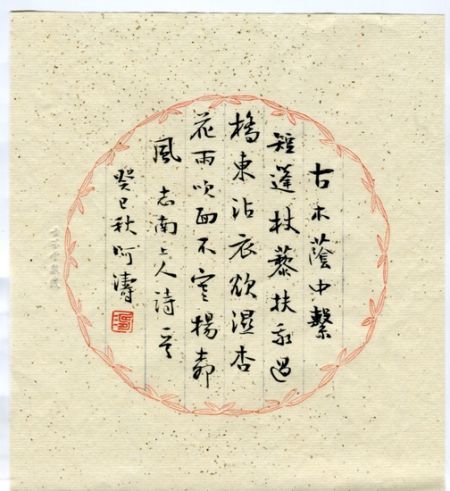 古木蔭中繫
短蓬杖藜扶我過
橋東沾衣欲濕杏
花雨吹面不寒楊柳
風 志南上人詩一首
癸巳秋阿濤